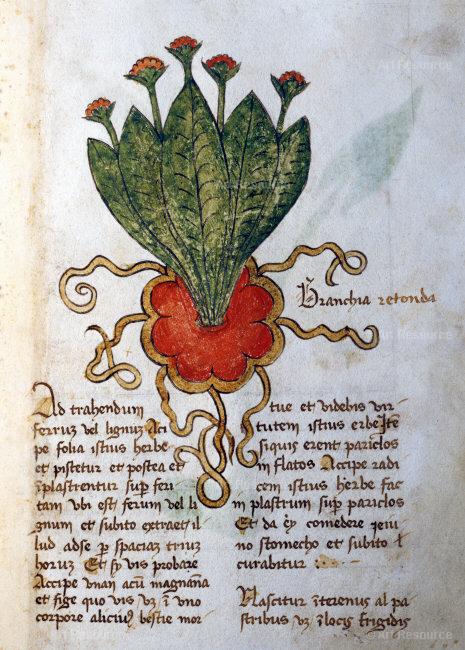 Branchia retonda
Ad trahendum
ferruz vel lignuz Aci
pe folia istius herbe
et pistetur et postea et
īplastrentur sup feri
tam ubi est ferum vel li
gnum et subito extraet il
lud adse p spaciaz triuz
horuz Et sy vis probare
Accipe vnan acū magnana
et fige quo vis vz ī vno
corpore aliciuꝰ bestie mor
tue et videbis vir
tutem istius erbe Itē
siquis erent pariclos
in flatos Accipe radi
cem istius herbe fac
in plastrum sup pariclos
Et da ey comedere ieiu
no stomecho et subito
curabitur
Nascitur ī terenus al pa
stribus vz ī locis frigidis
© Art Resource